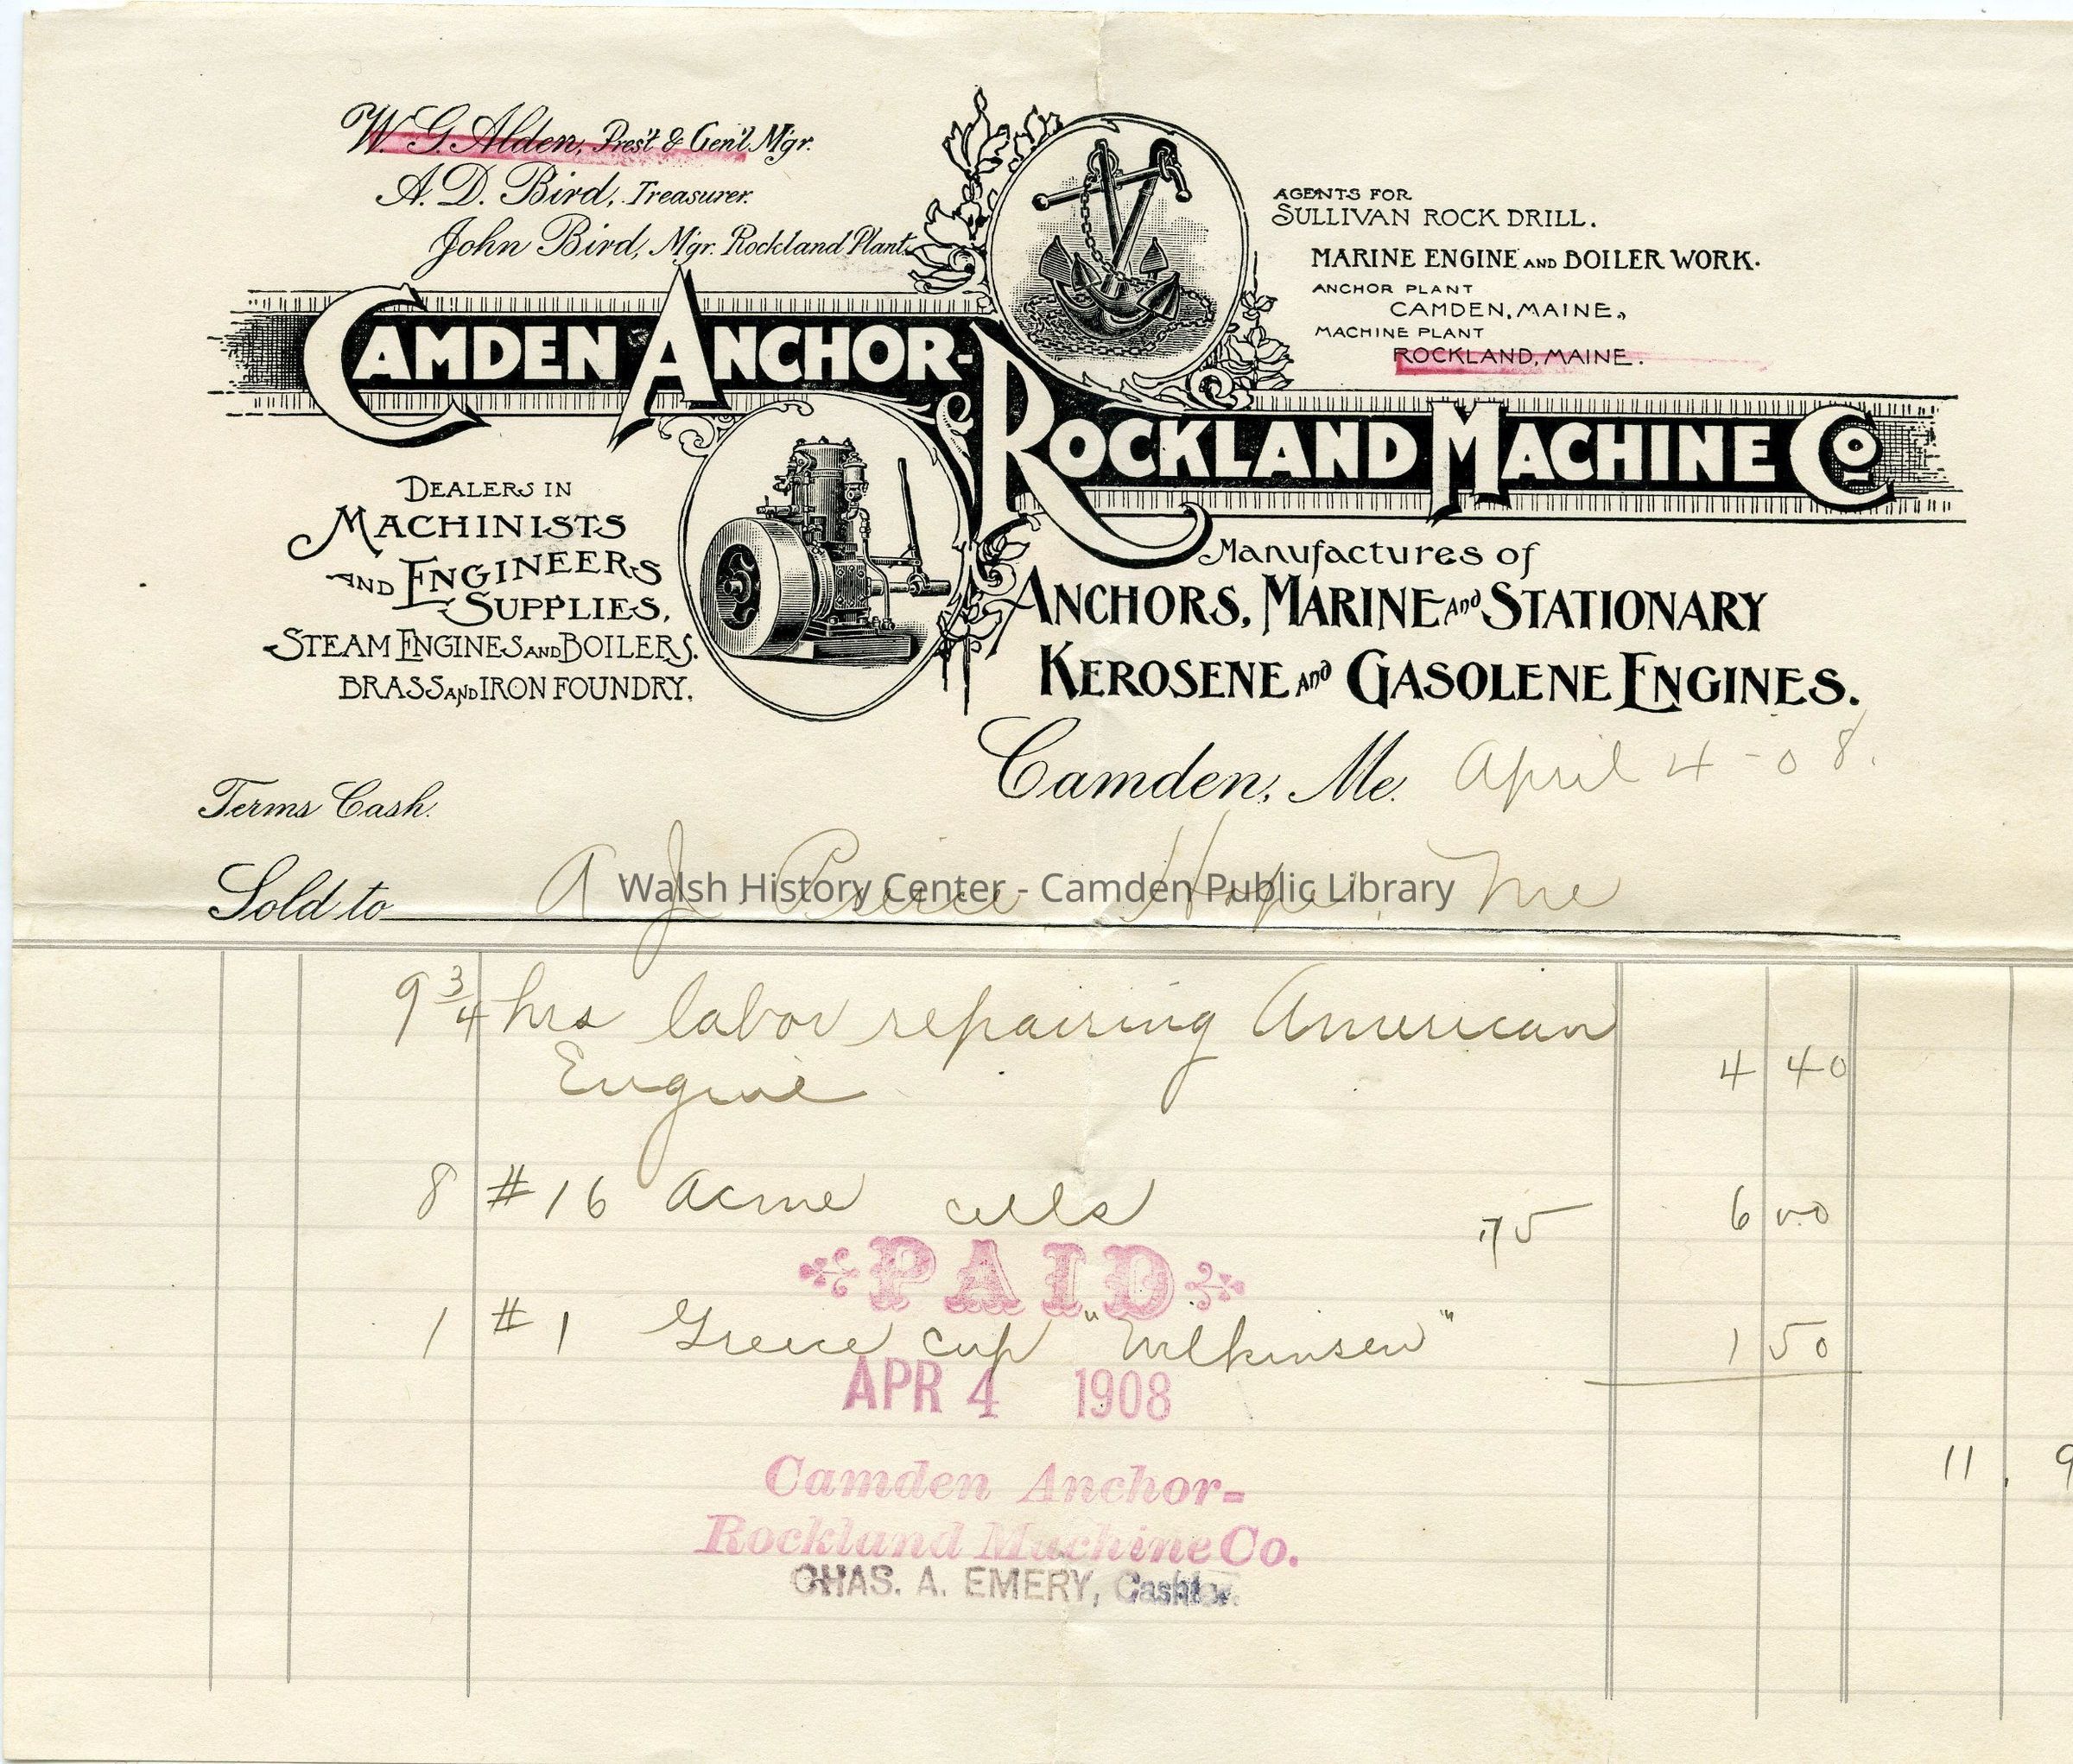 W. G. Alden, Pres't & Gen'l Mgr.
A. D. Bird, Treasurer.
John Bird, Mgr. Rockland Plant.
AGENTS FOR
SULLIVAN ROCK DRILL.
MARINE ENGINE AND BOILER WORK.
ANCHOR PLANT
CAMDEN, MAINE.,
MACHINE PLANT
ROCKLAND, MAINE.
CAMDEN ANCHOR-
ROCKLAND MACHINE CO
DEALERS IN
MACHINISTS
AND ENGINEERS
SUPPLIES,
STEAM ENGINES AND BOILERS.
BRASS AND IRON FOUNDRY.
Manufactures of
ANCHORS, MARINE AND STATIONARY
KEROSENE AND GASOLENE ENGINES.
Camden, Me. April 4-08.
Terms Cash.
Sold to A J Hope, Me
Walsh History Center - Camden Public Library
9 3/4 hrs labor repairing American
Engine 4 40
8 #16 Acme cells .75 6 00
PAID
1 #1 Greece cup "Wilkinsen" 1 50
APR 4 1908
11.9
Camden Anchor-
Rockland Machine Co.
CHAS. A. EMERY, Cashier.